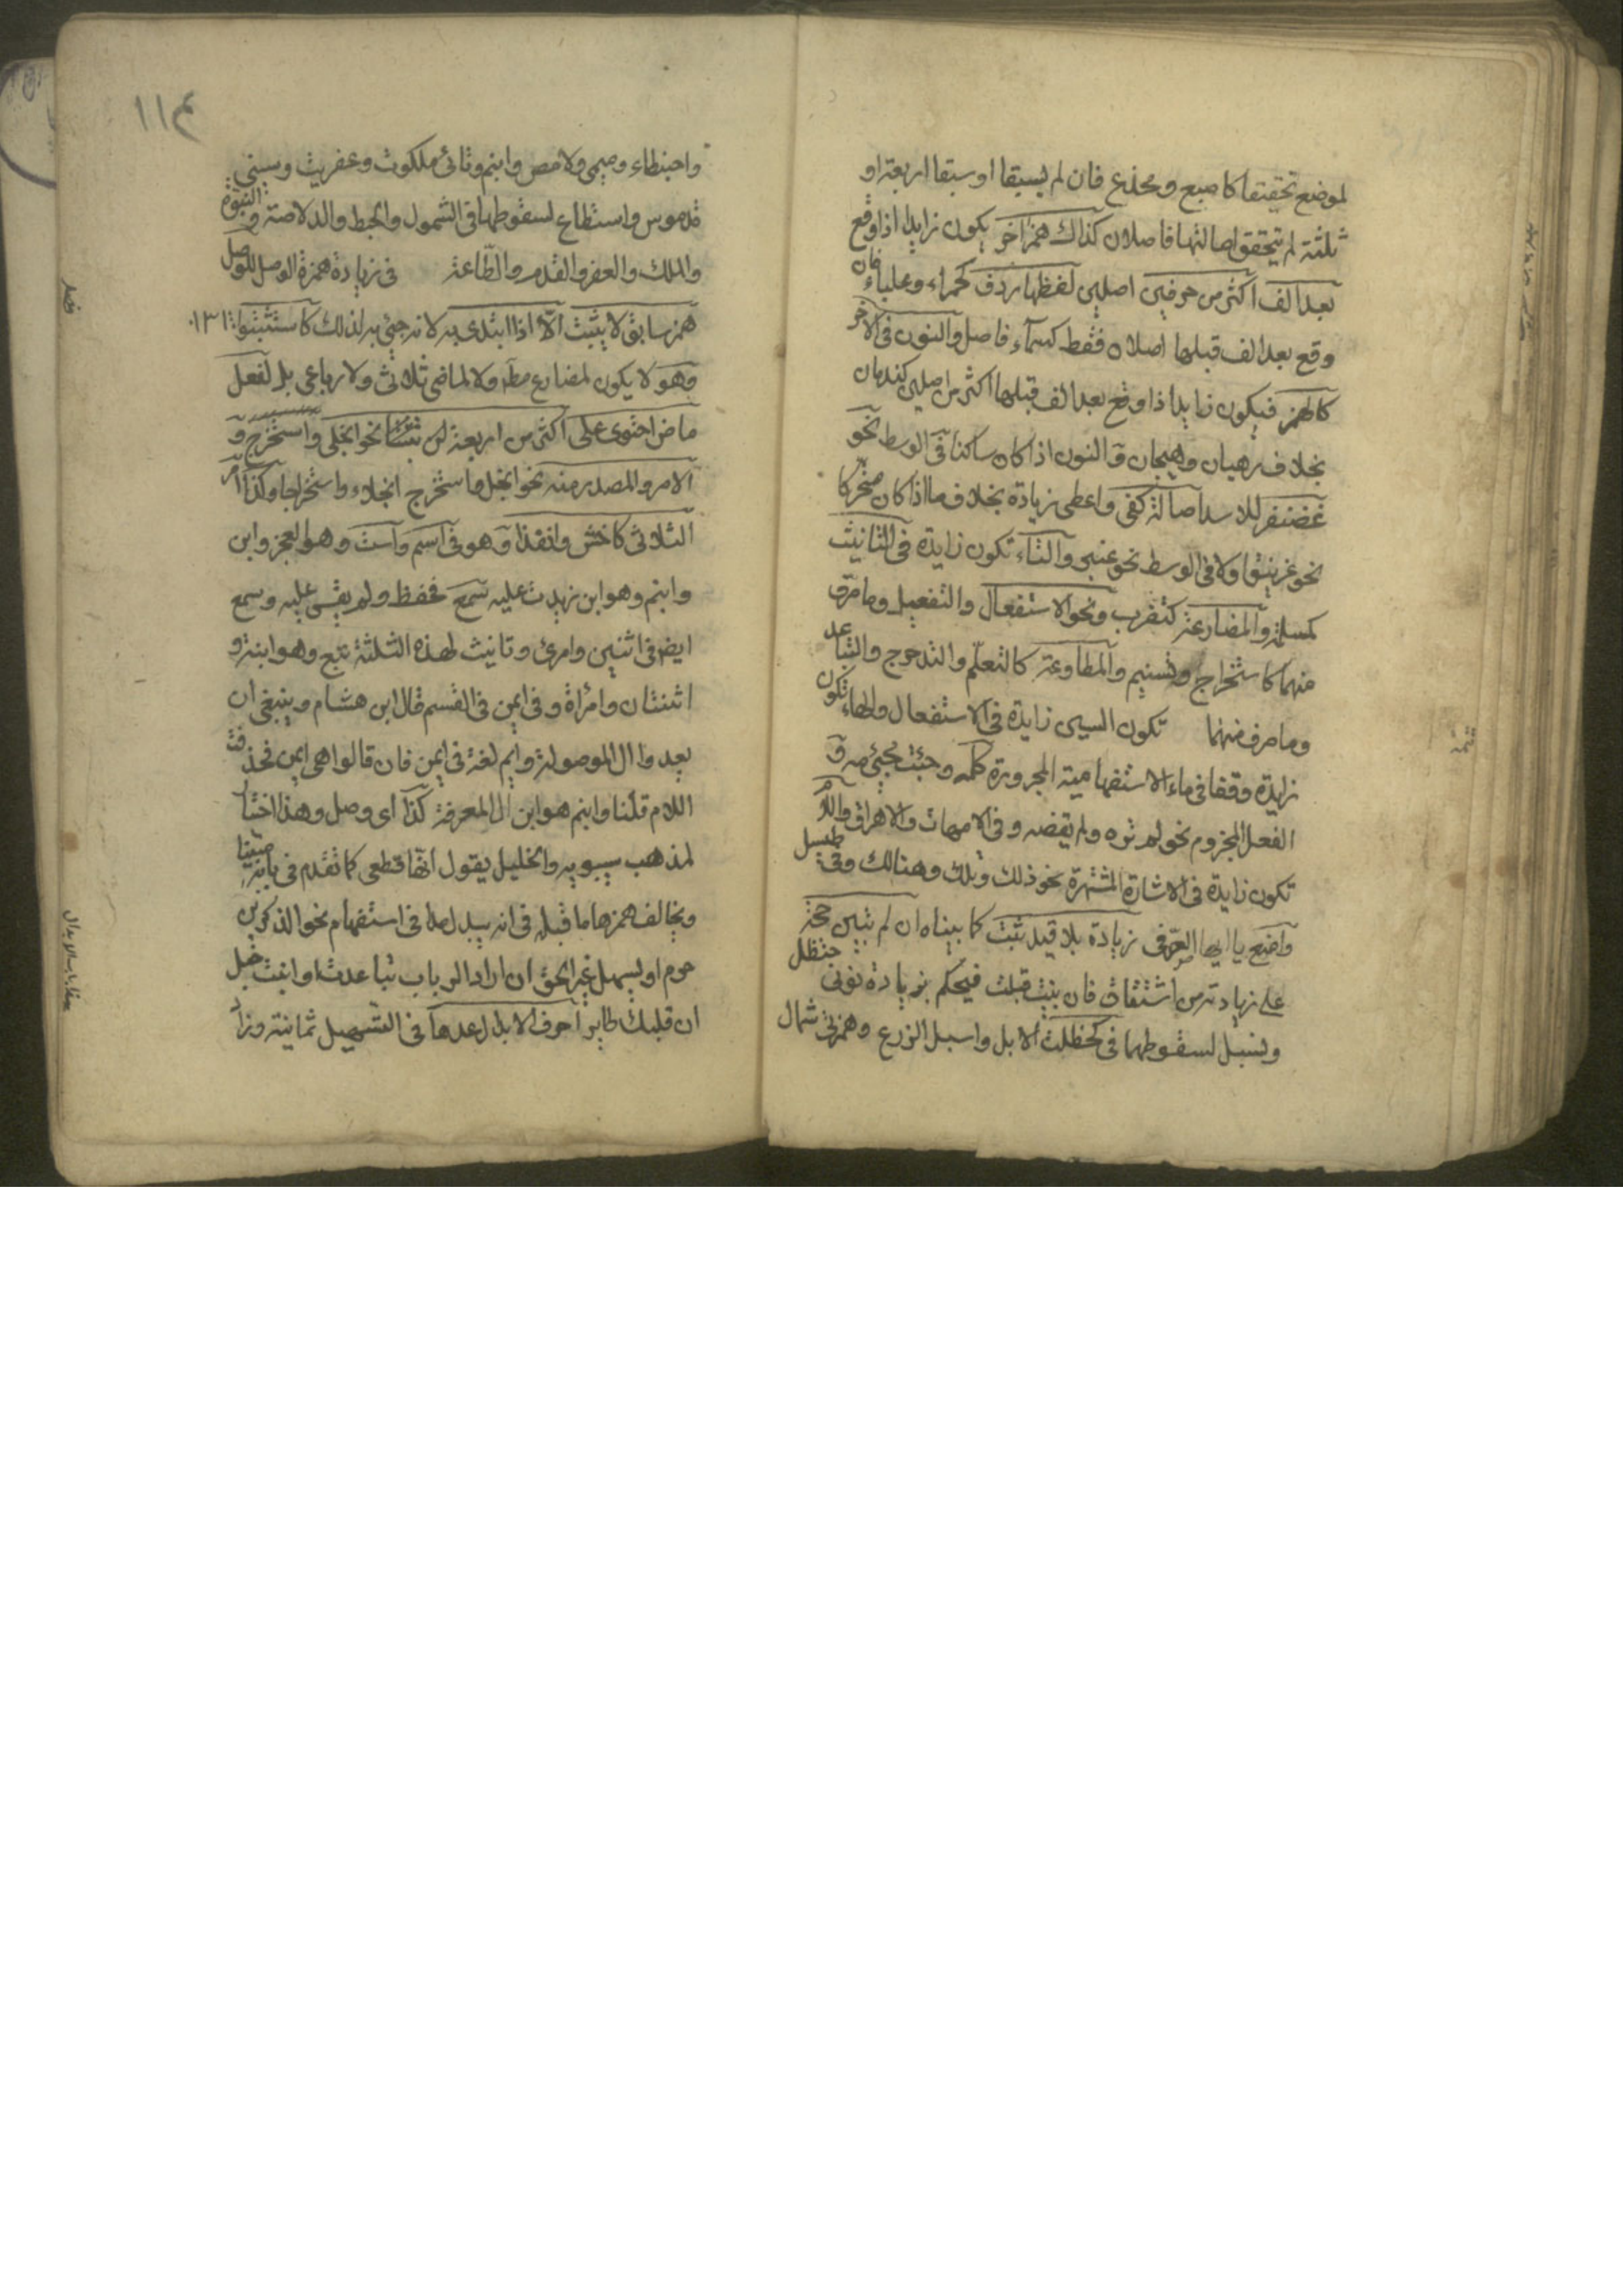 لموضع تحققتا كاصبع ومخدع فان لم يسبقا او سبقا اربعة او
ثلثة لم يتحقق اصالتها فاصلان كذاك همز اخر يكون زايدا اذا وقع
بعد الف اكثر من حرفين اصليين لفظها ردف كحمراء وعلباء فان
وقع بعد الف قبلها اصلان فقط كسماء فاصل والنون في الآخر
كالهمز فيكون زايدا اذا وقع بعد الف قبلها اكثر من اصليين كندمان
بخلاف رهبان وهيجان و النون اذا كان ساكنا في الوسط نحو
غضنفر للاسد اصالة كفى واعطى زيادة بخلاف ما اذا كان متحركا
نحو غرنيق او لا في الوسط نحو عنبر والتاء تكون زايدة في التانيث
كمسلمة والمضارعة كتضرب ونحو الاستفعال والتفعيل وما صرف
منهما كاستخراج وتسنيم والمطاوعة كالتعلم والتدحرج والتباعد
وما صرف منهما تكون السين زايدة في الاستفعال والهاء تكون
زايدة وقفا في ماء الاستفهامية المجرورة كلمه وجئت مجيء مه و
الفعل المجزوم نحو لم تره ولم يقضه وفي الامهات والاهراق واللام
تكون زايدة في الاشارة المشتهرة نحو ذلك وتلك وهنالك وفي طيسل
وامنع يا ايها الصرفي زيادة بلا قيد ثبت كما بيناه ان لم تبين حجة
على زيادته من اشتقاق فان بنيت قبلت فيحكم بزيادة نوني حنظل
وسنبل لسقوطهما في حظلت الابل واسبل الزرع وهمزتي شمال
١١٤
واحبنطاء وميمي ولامص وابنم وتائي ملكوت وعفريت وسيني
قدموس واستطاع لسقوطها في الشمول والحبط والدلاصة والبنوة
والملك والعفر والقدم والطاعة في زيادة همزة الوصل للوصل
همز سابق لا يثبت الا اذا ابتدى به لانه جئي به لذلك كاستثبتوا
وهو لا يكون لمضارع مطلقا ولا لماض ثلاثي ولا رباعي بل لفعل
ماض احتوى على اكثر من اربعة نحو انجلى واستخرج و
الامر والمصدر منه نحو انجل واستخرج انجلاء واستخراجا وكذا امر
الثلاثي كاخش وانفذا وهو في اسم واست وهو العجز وابن
وابنم وهو ابن زيدت عليه سمع فحفظ ولم يقس عليه وسمع
ايضا في اثنين وامرئ وتانيث لهذه الثلثة تبع وهو ابنة و
اثنتان وامرأة وفي ايمن في القسم قال ابن هشام وينبغي ان
يعدوا ال الموصولة وايم لغة في ايمن فان قالوا هي ايمن فحذفت
اللام قلنا وابنم هو ابن ال المعرفة كذا اى وصل وهذا اختيار
لمذهب سيبويه والخليل يقول انها قطعي كما تقدم في بابه مبينا
ويخالف همزها ما قبله في انه يبدل مدا في استفهام نحو الذكرين
حرم او يسهل نحو الحق ان دار الرباب تباعدت او انبت حبل
ان قلبك طاير احرف الابدال عدها في التسهيل ثمانية وزاد
فصل
هذا باب الابدال
تتمة